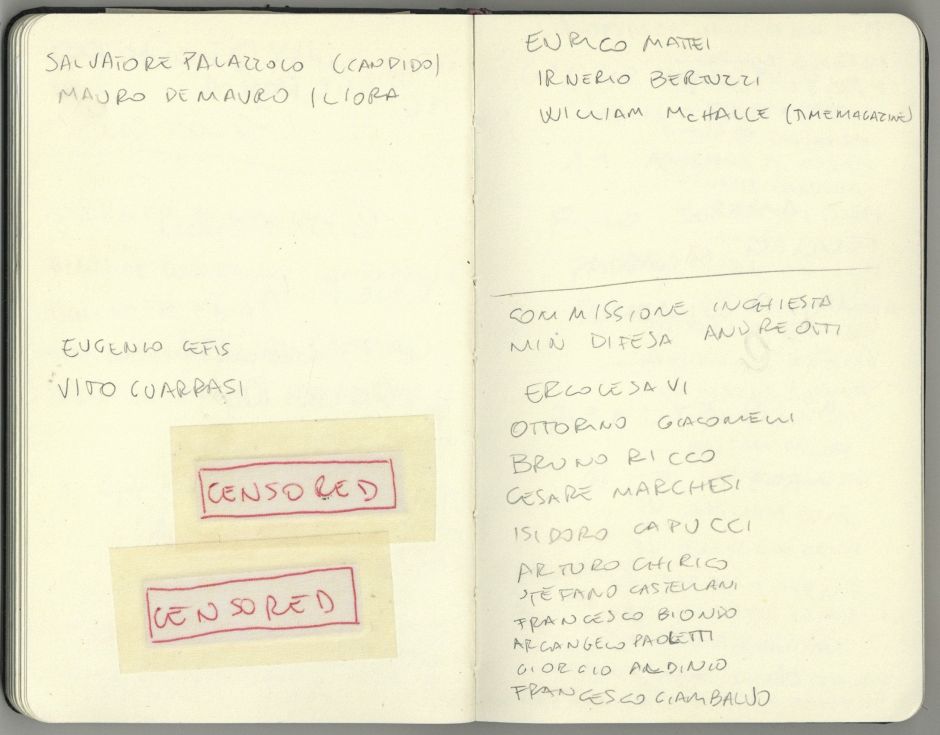 SALVATORE PALAZZOLO (CANDIDO)
MAURO DE MAURO / L'ORA
EUGENIO CEFIS
VITO GUARRASI
CENSORED
CENSORED
ENRICO MATTEI
IRNERIO BERTUZZI
WILLIAM McHALLE (TIMEMAGAZINE)
COMMISSIONE INCHIESTA
MIN DIFESA ANDREOTTI
ERCOLE SAVI
OTTORINO GIACOMELLI
BRUNO RICCO
CESARE MARCHESI
ISIDORO CAPUCCI
ARTURO CHIRICO
STEFANO CASTELLANI
FRANCESCO BIONDO
ARCANGELO PAOLETTI
GIORGIO ALDINIO
FRANCESCO GIAMBALVO